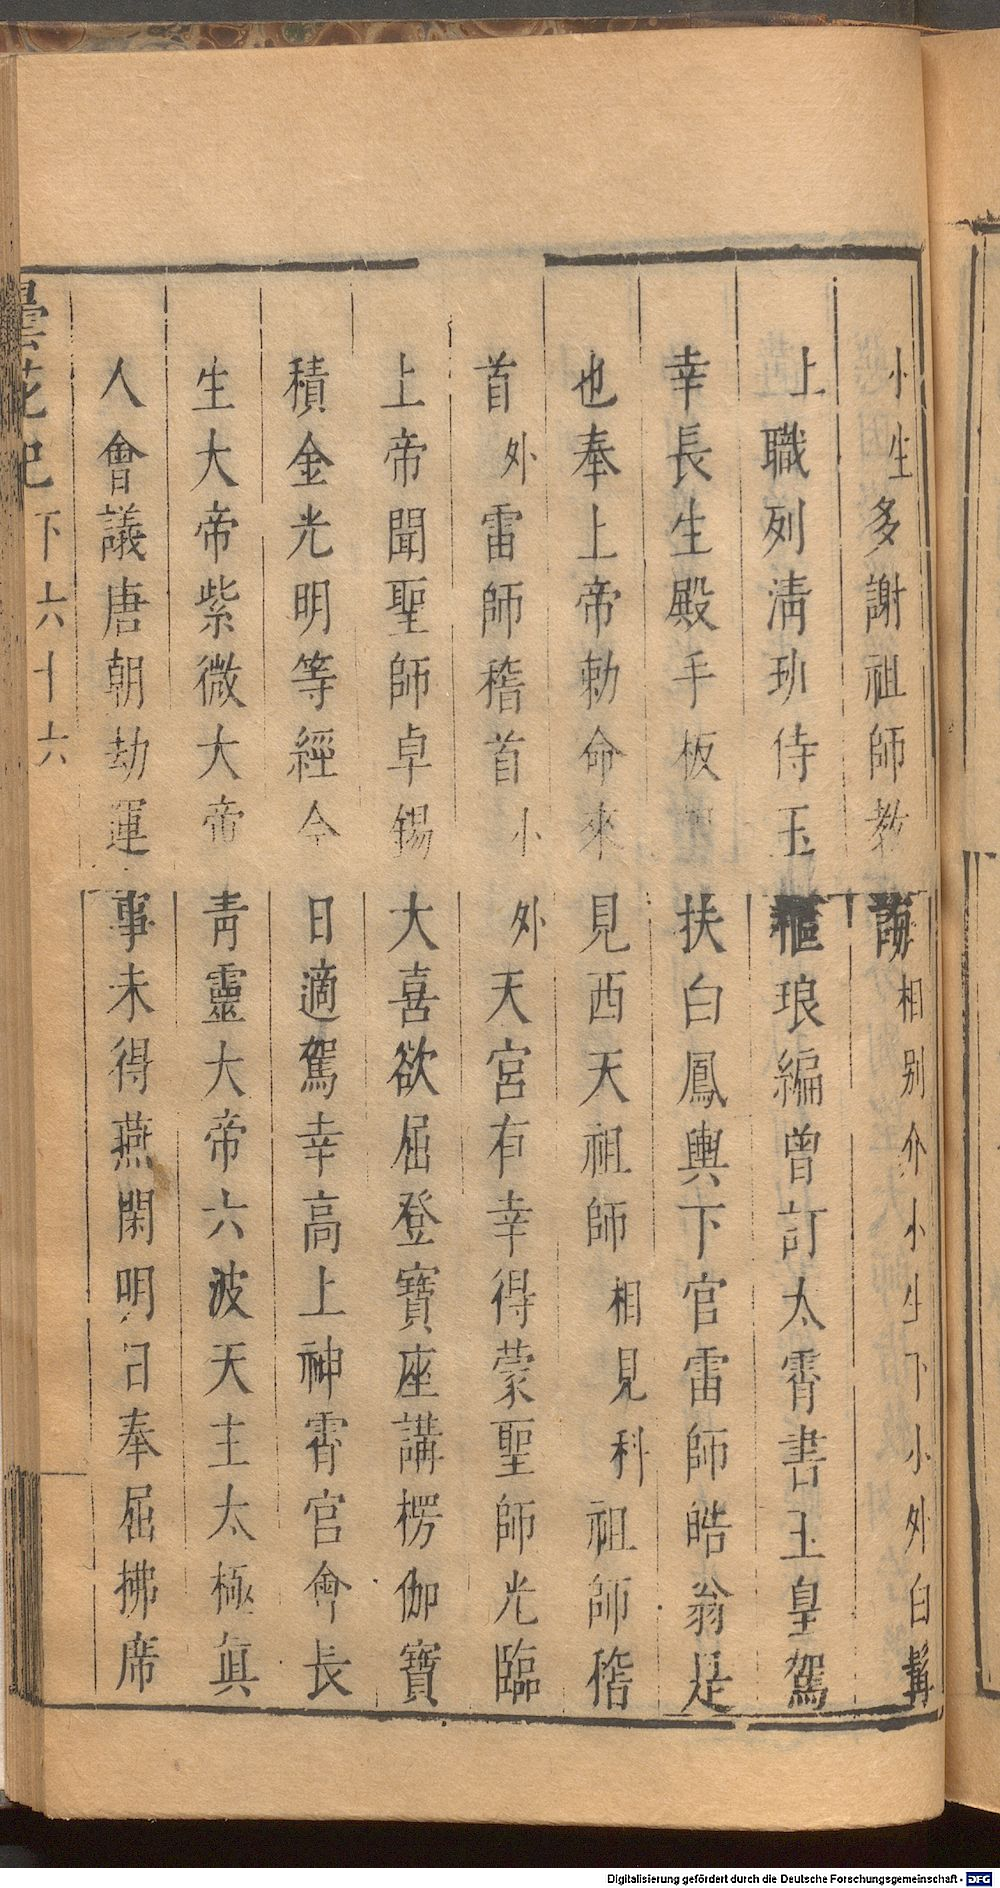 小生多謝祖師教誨相別介小生下小外白髯
上職列清班侍玉樞琅編曾訂太霄書玉皇駕
幸長生殿手板扶白鳳輿下官雷師皓翁是
也奉上帝勅命來見西天祖師相見科祖師稽
首外雷師稽首小外天宮有幸得蒙聖師光臨
上帝聞聖師卓錫大喜欲屈登寶座講楞伽寶
積金光明等經今日適駕幸高上神霄宮會長
生大帝紫微大帝青靈大帝六波天主太極眞
人會議唐朝劫運事未得燕閑明日奉屈拂席
曇花記 下 六十六
Digitalisierung gefördert durch die Deutsche Forschungsgemeinschaft - DFG